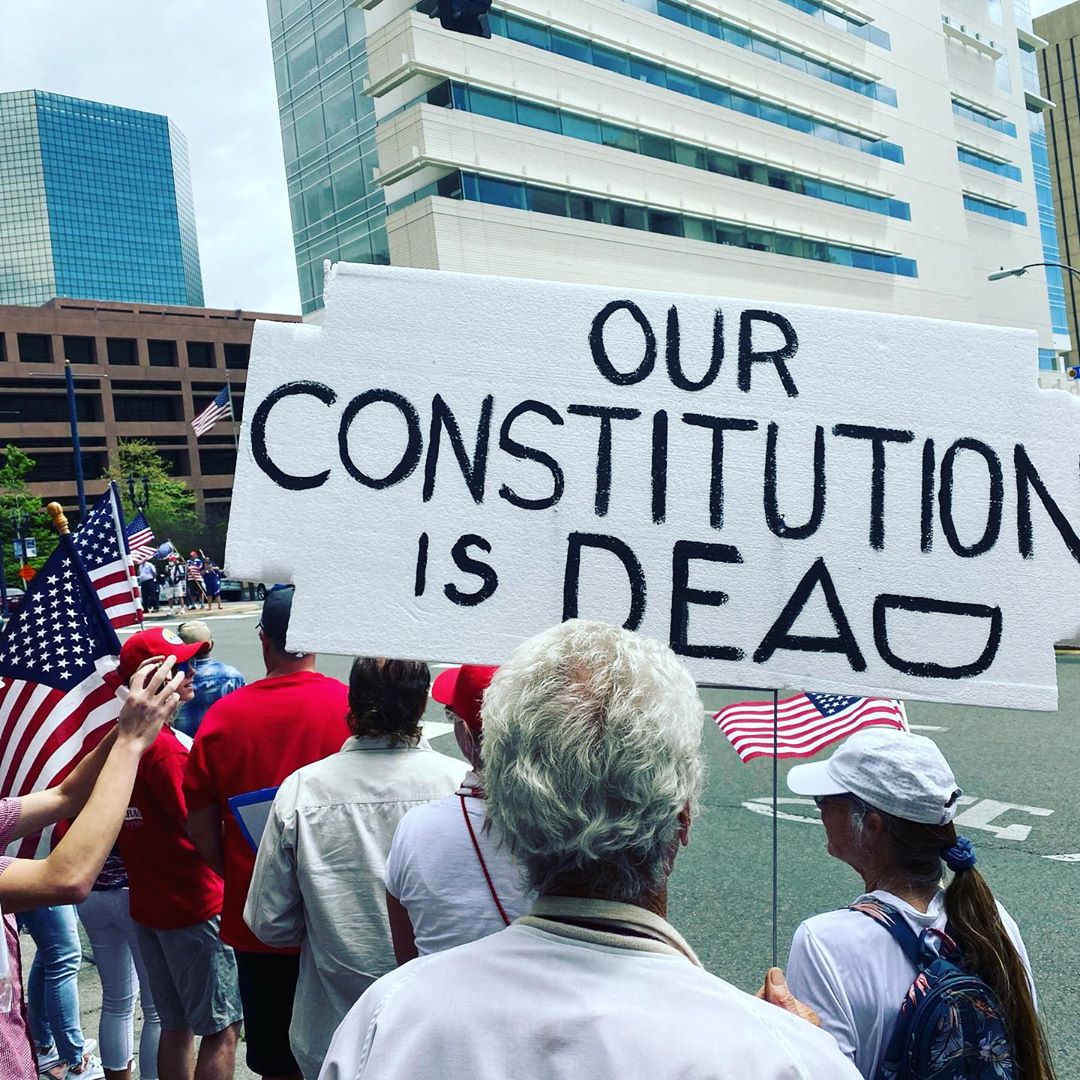 OUR
CONSTITUTION
IS DEAD